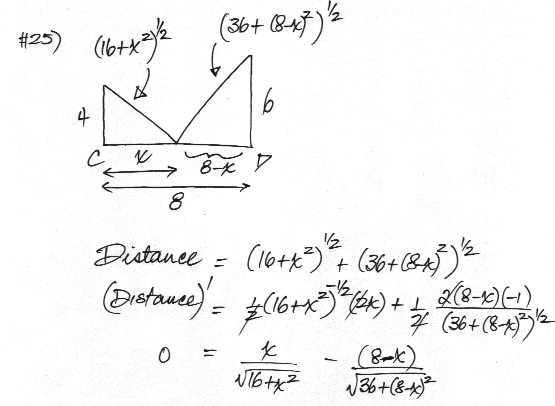 #25)
(16+x²)^1/2
(36+(8-x)²)^1/2
4
6
C
x
8-x
D
8
Distance = (16+x²)^1/2 + (36+(8-x)²)^1/2
(Distance)' = 1/2 (16+x²)^-1/2 (2x) + 1/2 2(8-x)(-1)/(36+(8-x)²)^1/2
0 = x/√16+x² - (8-x)/√36+(8-x)²